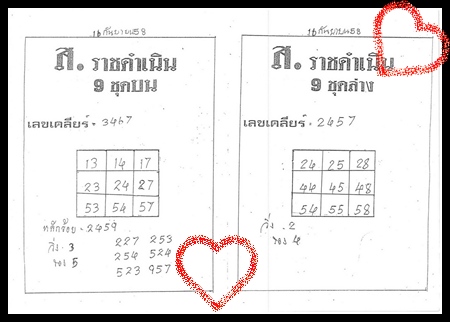 16 กันยายน58
ส. ราชดำเนิน
9 ชุดบน
เลขเคลียร์ • 3467
13 14 17
23 24 27
53 54 57
หลักร้อย • 2459
วิ่ง • 3
รอง 5
227 253
254 524
523 957
16 กันยายน58
ส. ราชดำเนิน
9 ชุดล่าง
เลขเคลียร์ • 2457
24 25 28
44 45 48
54 55 58
วิ่ง • 2
รอง 4